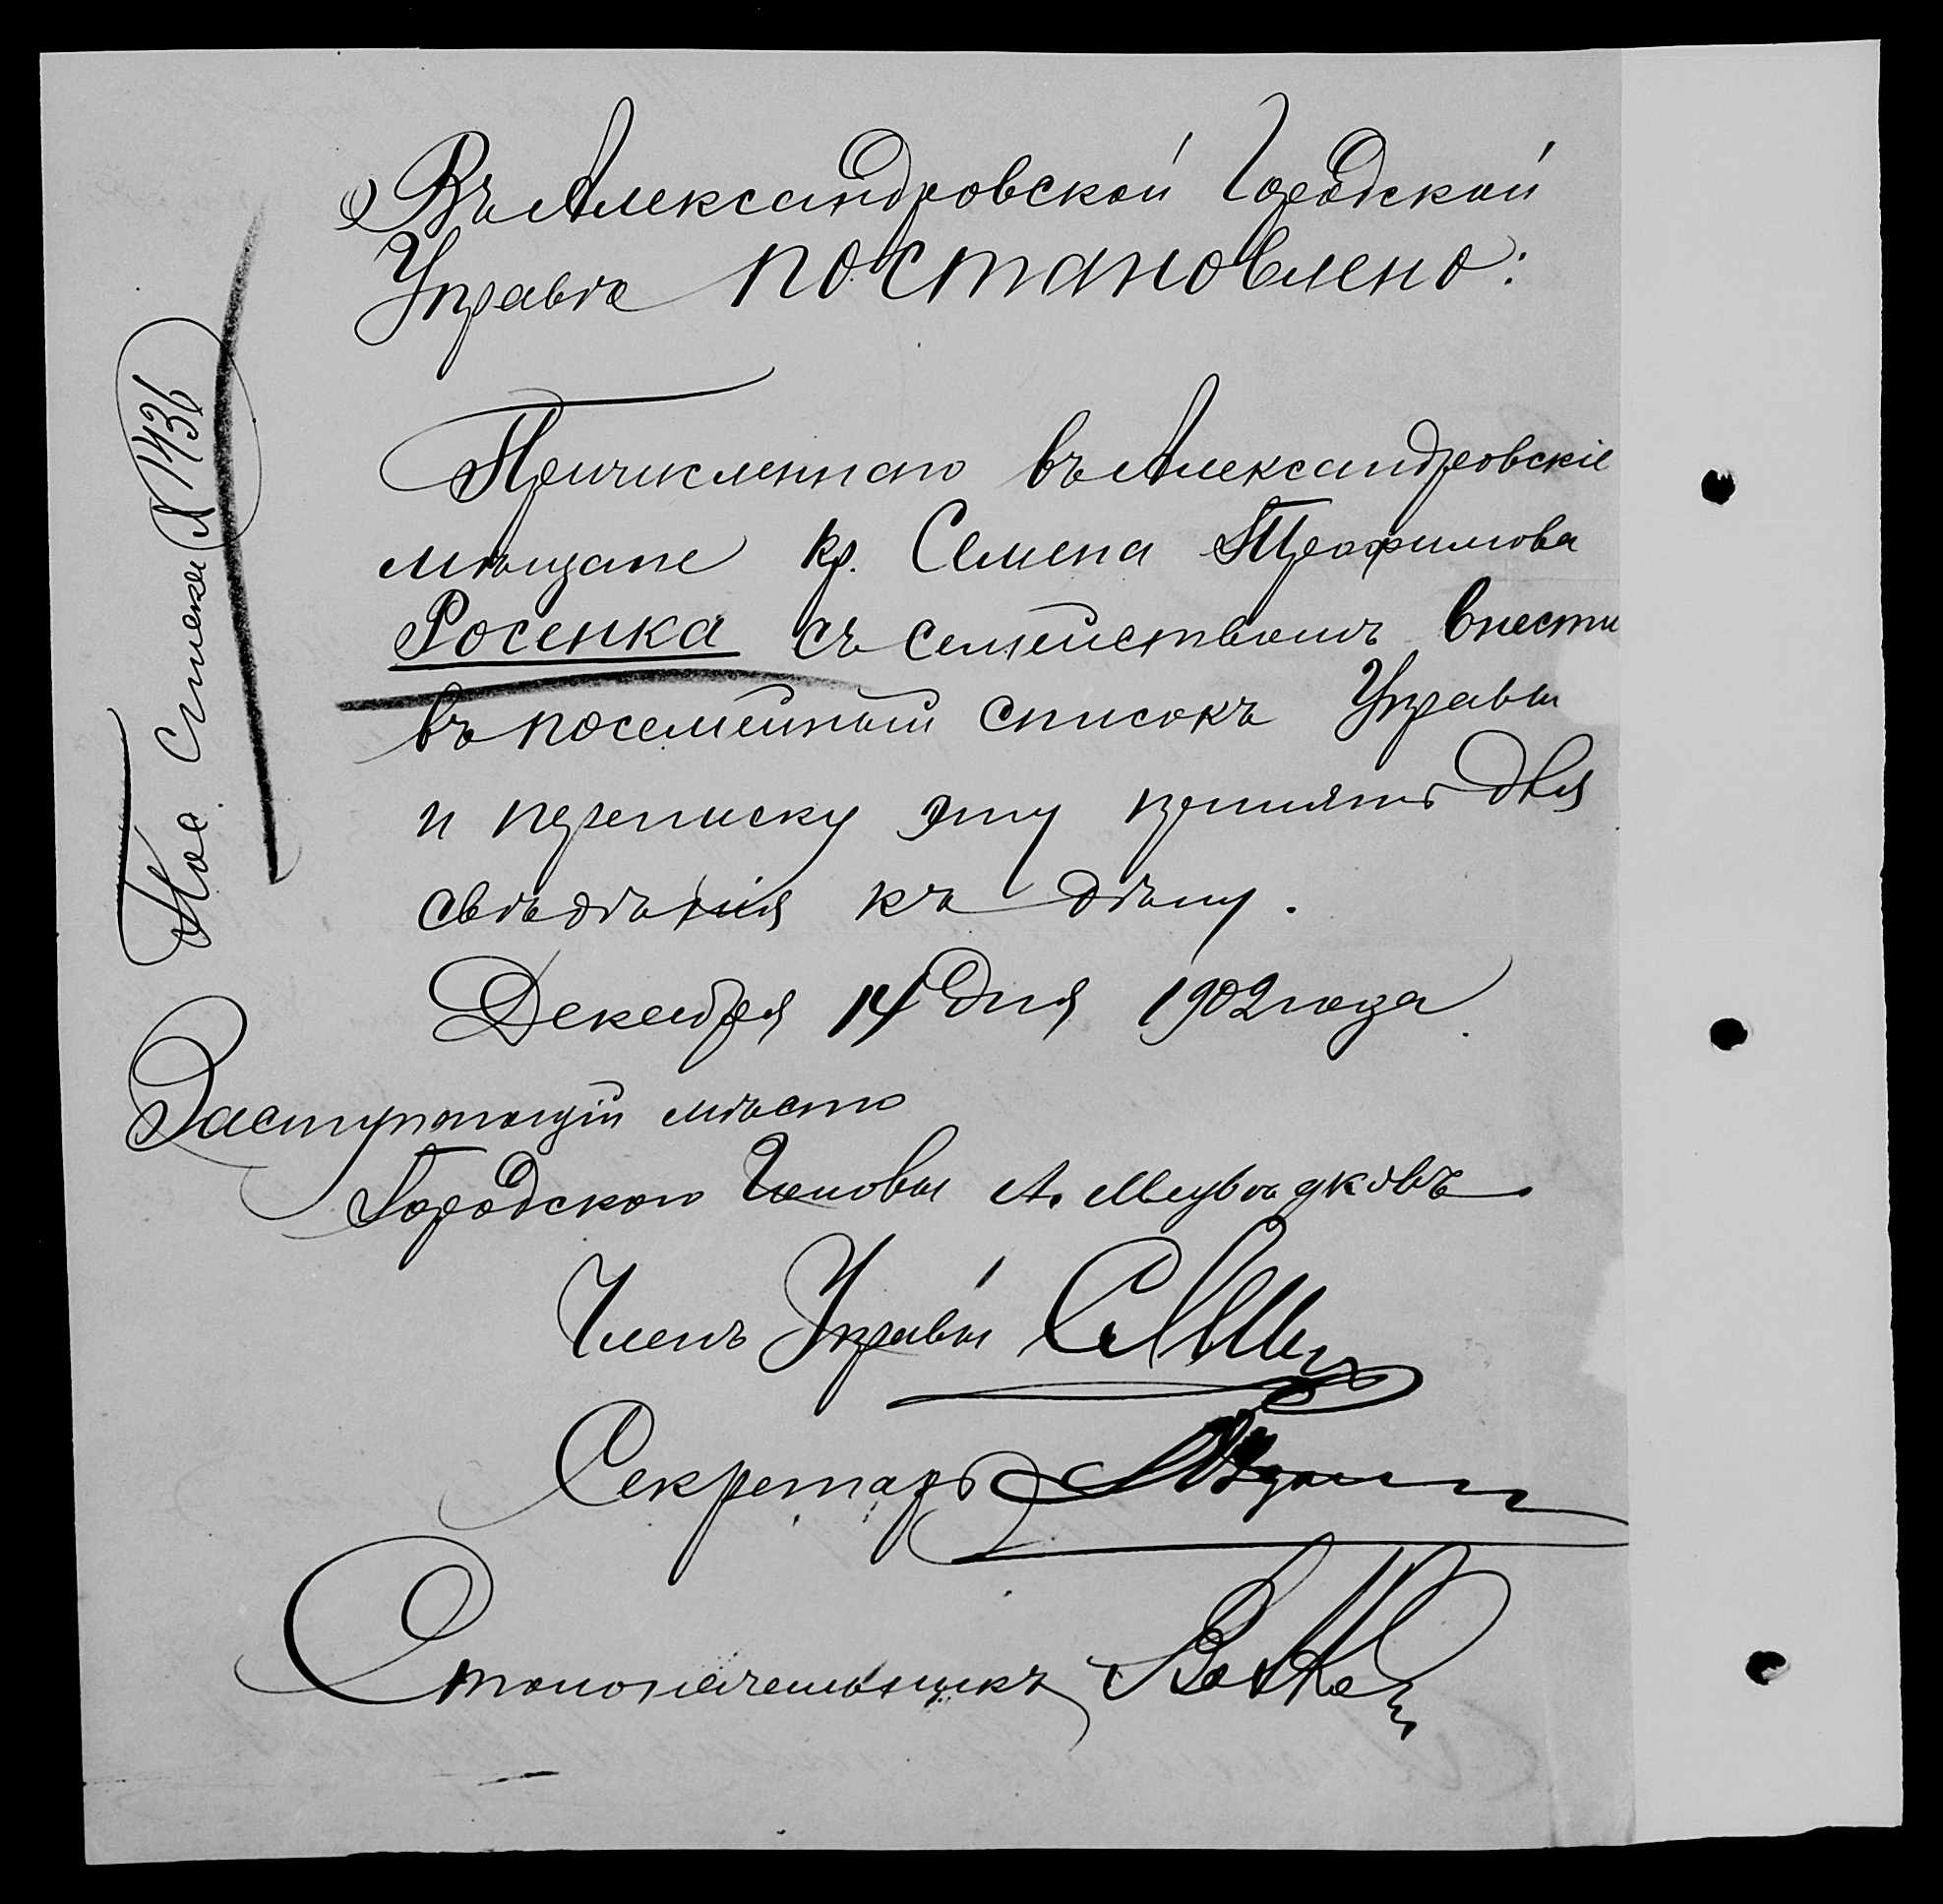 Въ Александровской Городской
Управѣ постановлено:
Причисленнаго въ Александровскіе
мѣщане кр. Семена Трофимова
Росенка съ семействомъ внести
въ посемейный списокъ Управы
и переписку эту принять для
свѣдѣнія къ дѣлу.
Декабря 14 дня 1902 года
Заступающій мѣсто
Городскаго Головы А. Медвѣдковъ
Членъ Управы
Секретарь
Столоначальникъ
Пос. списка № 1436